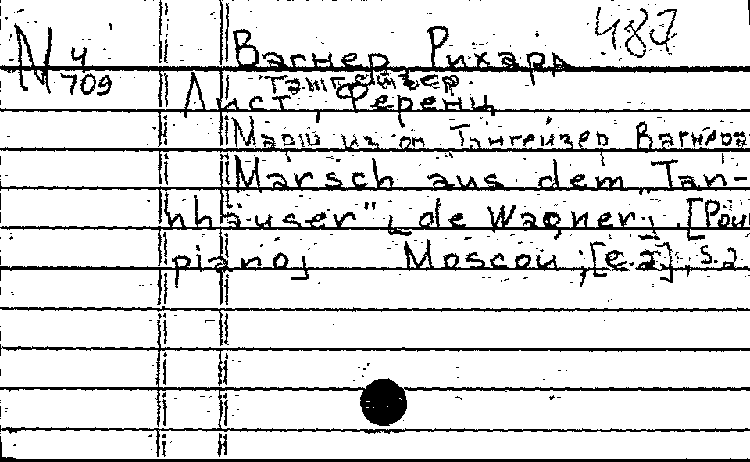 N 4/709 Вагнер, Рихард 487
Тангейзер
Лист, Ференц
Марш из оп. Тангейзер Вагнера
Marsch aus dem „Tan-
nhäuser" [de Wagner] . [Pour
piano] Moscou ; [e.a] , s.a.